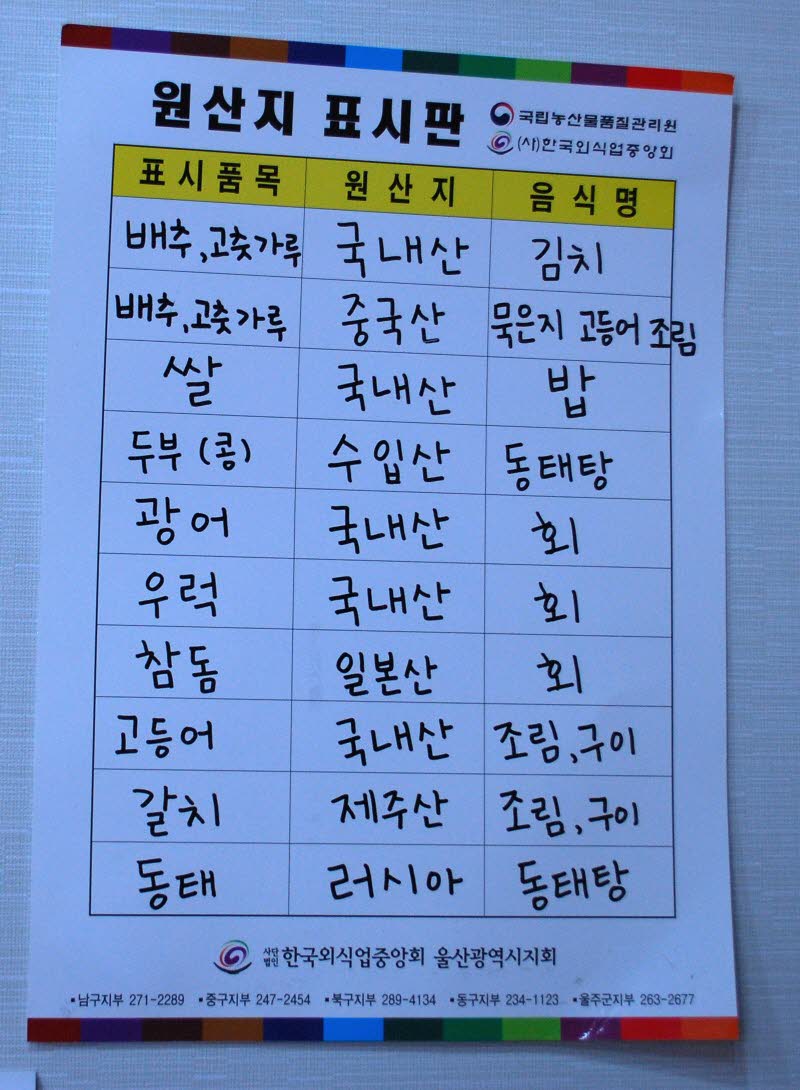 원산지 표시판
국립농산물품질관리원
(사)한국외식업중앙회
표시품목 원산지 음식명
배추,고춧가루 국내산 김치
배추,고춧가루 중국산 묵은지 고등어 조림
쌀 국내산 밥
두부 (콩) 수입산 동태탕
광어 국내산 회
우럭 국내산 회
참돔 일본산 회
고등어 국내산 조림,구이
갈치 제주산 조림,구이
동태 러시아 동태탕
사단법인 한국외식업중앙회 울산광역시지회
▪남구지부 271-2289 ▪중구지부 247-2454 ▪북구지부 289-4134 ▪동구지부 234-1123 ▪울주군지부 263-2677